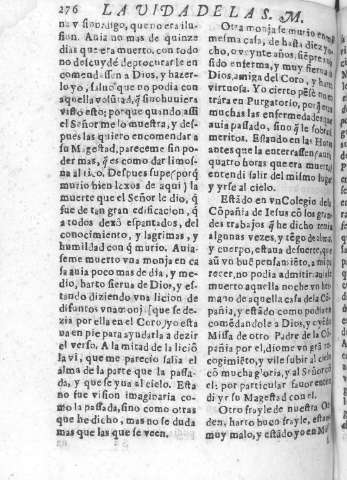 276 LA VIDA DE LA S. M.
na y su obligo, que no era ilu-
sion. Auia no mas de quinze
dias que era muerto, con todo
no descuydè de procurar le en
comendassen a Dios, y hazer-
lo yo, saluo que no podia con
aquella volũtad, q̃ si no huuiera
visto esto; porque quando assi
el Señor me lo muestra, y des-
pues las quiero encomendar a
su Magestad, pareceme sin po-
der mas, q̃ es como dar limos-
na al rico. Despues supe (porq̃
murio bien lexos de aqui) la
muerte que el Señor le dio, q̃
fue de tan gran edificacion, q̃
a todos dexò espantados, del
conocimiento, y lagrimas, y
humildad con q̃ murio. Auia-
seme muerto vna monja en ca
sa auia poco mas de dia, y me-
dio, harto sierua de Dios, y es-
tando diziendo vna licion de
difuntos vna monja [que se de-
zia por ella en el Coro] yo esta
ua en pie para ayudarla a dezir
el verso. A la mitad de la liciõ
la vi, que me parecio salia el
alma de la parte que la passa-
da, y que se yua al cielo. Esta
no fue vision imaginaria co-
mo la passada, sino como otras
que he dicho, mas no se duda
mas que las que se veen.
Otra monja se murio en mi
mesma casa, de hasta diez y o-
cho, o veynte años, siẽpre auia
sido enferma, y muy sierua de
Dios, amiga del Coro, y harto
virtuosa. Yo cierto pẽsè no en-
trára en Purgatorio, porq̃ eran
muchas las enfermedades que
auia passado, sino q̃ le sobràran
meritos. Estando en las Horas
antes que la enterrassen (auria
quatro horas que era muerta)
entendi salir del mismo lugar,
y yrse al cielo.
Estãdo en vn Colegio de la
Cõpañia de Iesus cõ los gran-
des trabajos q̃ he dicho tenia
algunas vezes, y tẽgo de alma,
y cuerpo, estaua de suerte, que
aũ vn buè pensamiẽto, a mi pa-
recer, no podia admitir: auiase
muerto aquella noche vn her-
mano de aquella casa de la Cõ-
pañia, y estando como podia en
comẽdandole a Dios, y oyẽdo
Missa de otro Padre de la Cõ-
pañia por el, diome vn grã re-
cogimiẽto, y vile subir al cielo
cõ mucha gloria, y al Señor cõ
el: por particular fauor enten-
di yr su Magestad con el.
Otro frayle de nuestra Or-
den, harto buen frayle, estaua
muy malo, y estãdo yo en Mis-